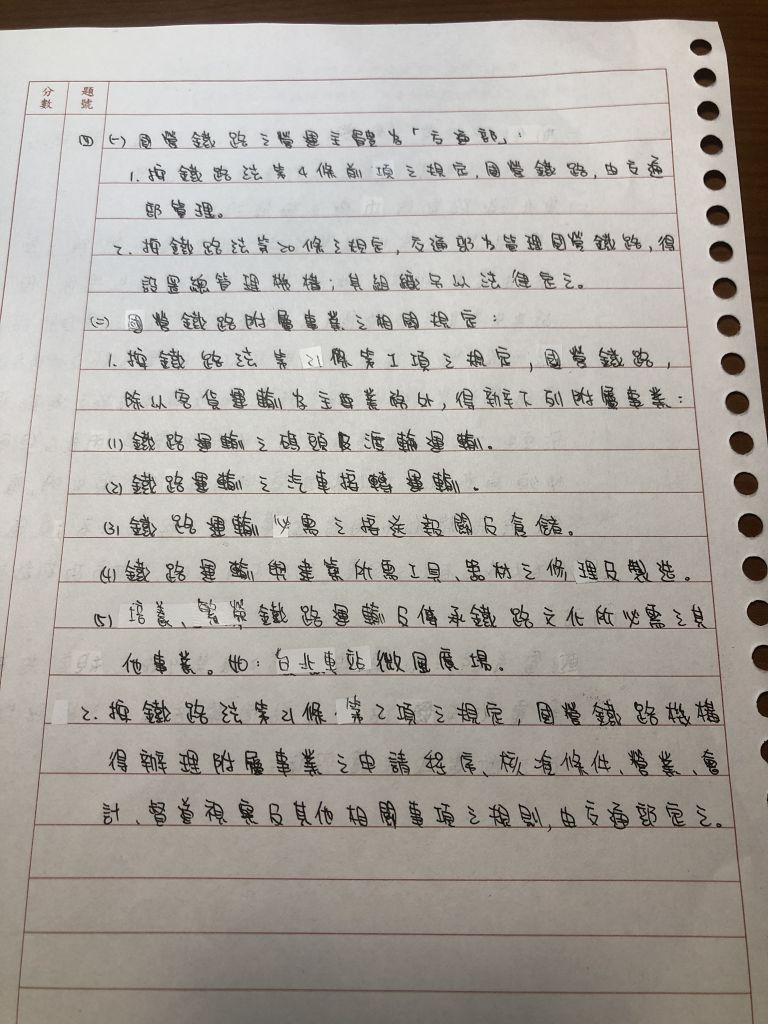 分數 題號
四 (一) 國營鐵路之營運主體為「交通部」:
1. 按鐵路法第4條前項之規定,國營鐵路,由交通
部管理。
2. 按鐵路法第20條之規定,交通部為管理國營鐵路,得
設置總管理機構;其組織另以法律定之。
(二) 國營鐵路附屬事業之相關規定:
1. 按鐵路法第21條第1項之規定,國營鐵路,
除以客貨運輸為主要業務外,得辦下列附屬事業:
(1) 鐵路運輸之碼頭及渡輪運輸。
(2) 鐵路運輸之汽車接轉運輸。
(3) 鐵路運輸必需之接送報關及倉儲。
(4) 鐵路運輸與建築所需工具、器材之修理及製造。
(5) 培養、繁榮鐵路運輸及傳承鐵路文化所必需之其
他事業。如:台北車站微風廣場。
2. 按鐵路法第21條第2項之規定,國營鐵路機構
得辦理附屬事業之申請程序、核准條件、營業、會
計、督導視察及其他相關事項之規則,由交通部定之。